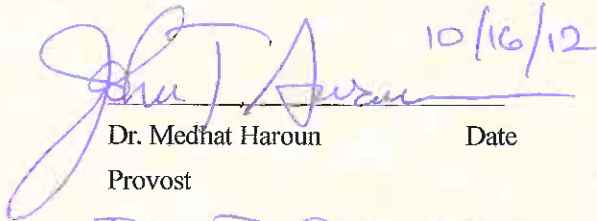 10/16/12
John T
Dr. Medhat Haroun Date
Provost